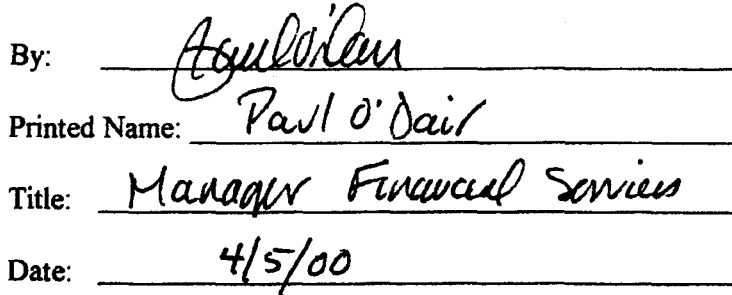 By: Paul O'Dair
Printed Name: Paul O'Dair
Title: Manager Financial Services
Date: 4/5/00